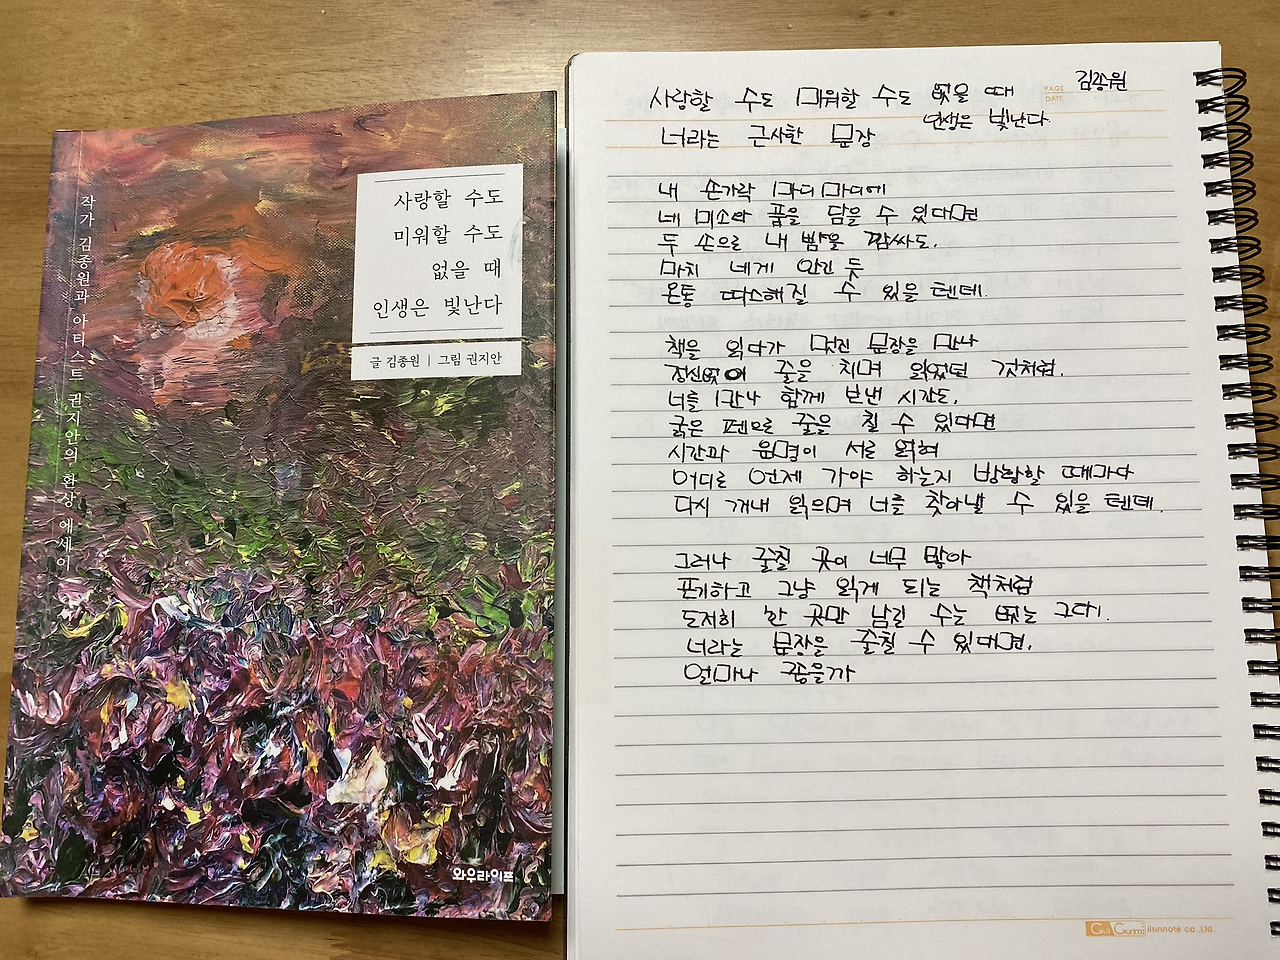 작가 김종원과 아티스트 권지안의 환상 에세이
사랑할 수도
미워할 수도
없을 때
인생은 빛난다
글 김종원 | 그림 권지안
와우라이프
사랑할 수도 미워할 수도 없을 때
인생은 빛난다
PAGE
DATE
김종원
너라는 근사한 문장
내 손가락 마디마디에
네 미소와 품을 담을 수 있다면
두 손으로 내 뺨을 감싸도,
마치 네게 안긴 듯
온통 따스해질 수 있을 텐데.
책을 읽다가 멋진 문장을 만나
정신없이 줄을 치며 읽었던 것처럼,
너를 만나 함께 보낸 시간도,
굵은 펜으로 줄을 칠 수 있다면
시간과 운명이 서로 얽혀
어디로 언제 가야 하는지 방황할 때마다
다시 꺼내 읽으며 너를 찾아낼 수 있을 텐데.
그러나 줄칠 곳이 너무 많아
포기하고 그냥 읽게 되는 책처럼
도저히 한 곳만 남길 수는 없는 그대!
너라는 문장을 줄칠 수 있다면,
얼마나 좋을까
Gul Gurim
ilsinnote co.,Ltd.